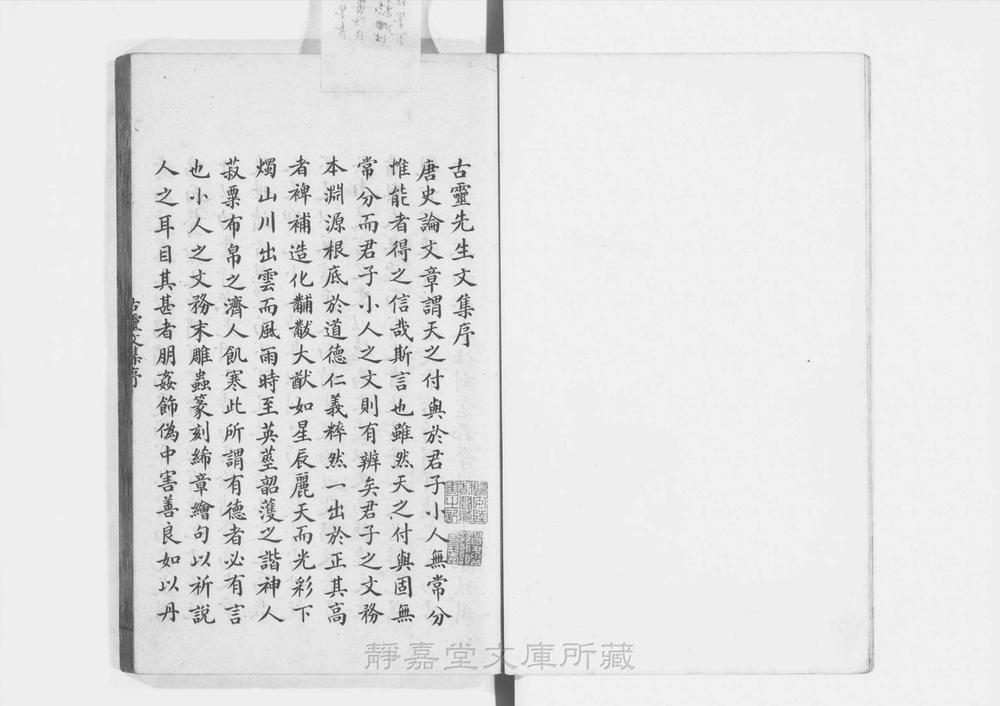 古靈先生文集序
唐史論文章謂天之付與於君子小人無常分
惟能者得之信哉斯言也雖然天之付與固無
常分而君子小人之文則有辨矣君子之文務
本淵源根底於道德仁義粹然一出於正其高
者裨補造化黼黻大猷如星辰麗天而光彩下
燭山川出雲而風雨時至英莖韶頀之諧神人
菽粟布帛之濟人飢寒此所謂有德者必有言
也小人之文務末雕蟲篆刻絺章繪句以祈說
人之耳目其甚者朋姦飾偽中害善良如以丹
古靈文集序
靜嘉堂文庫所藏